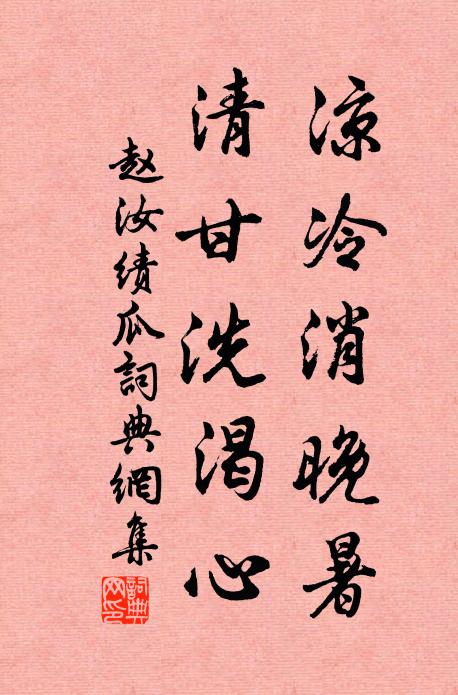 凉冷消晚暑
清甘洗渴心
赵汝绩瓜詞典網集
詞典网印